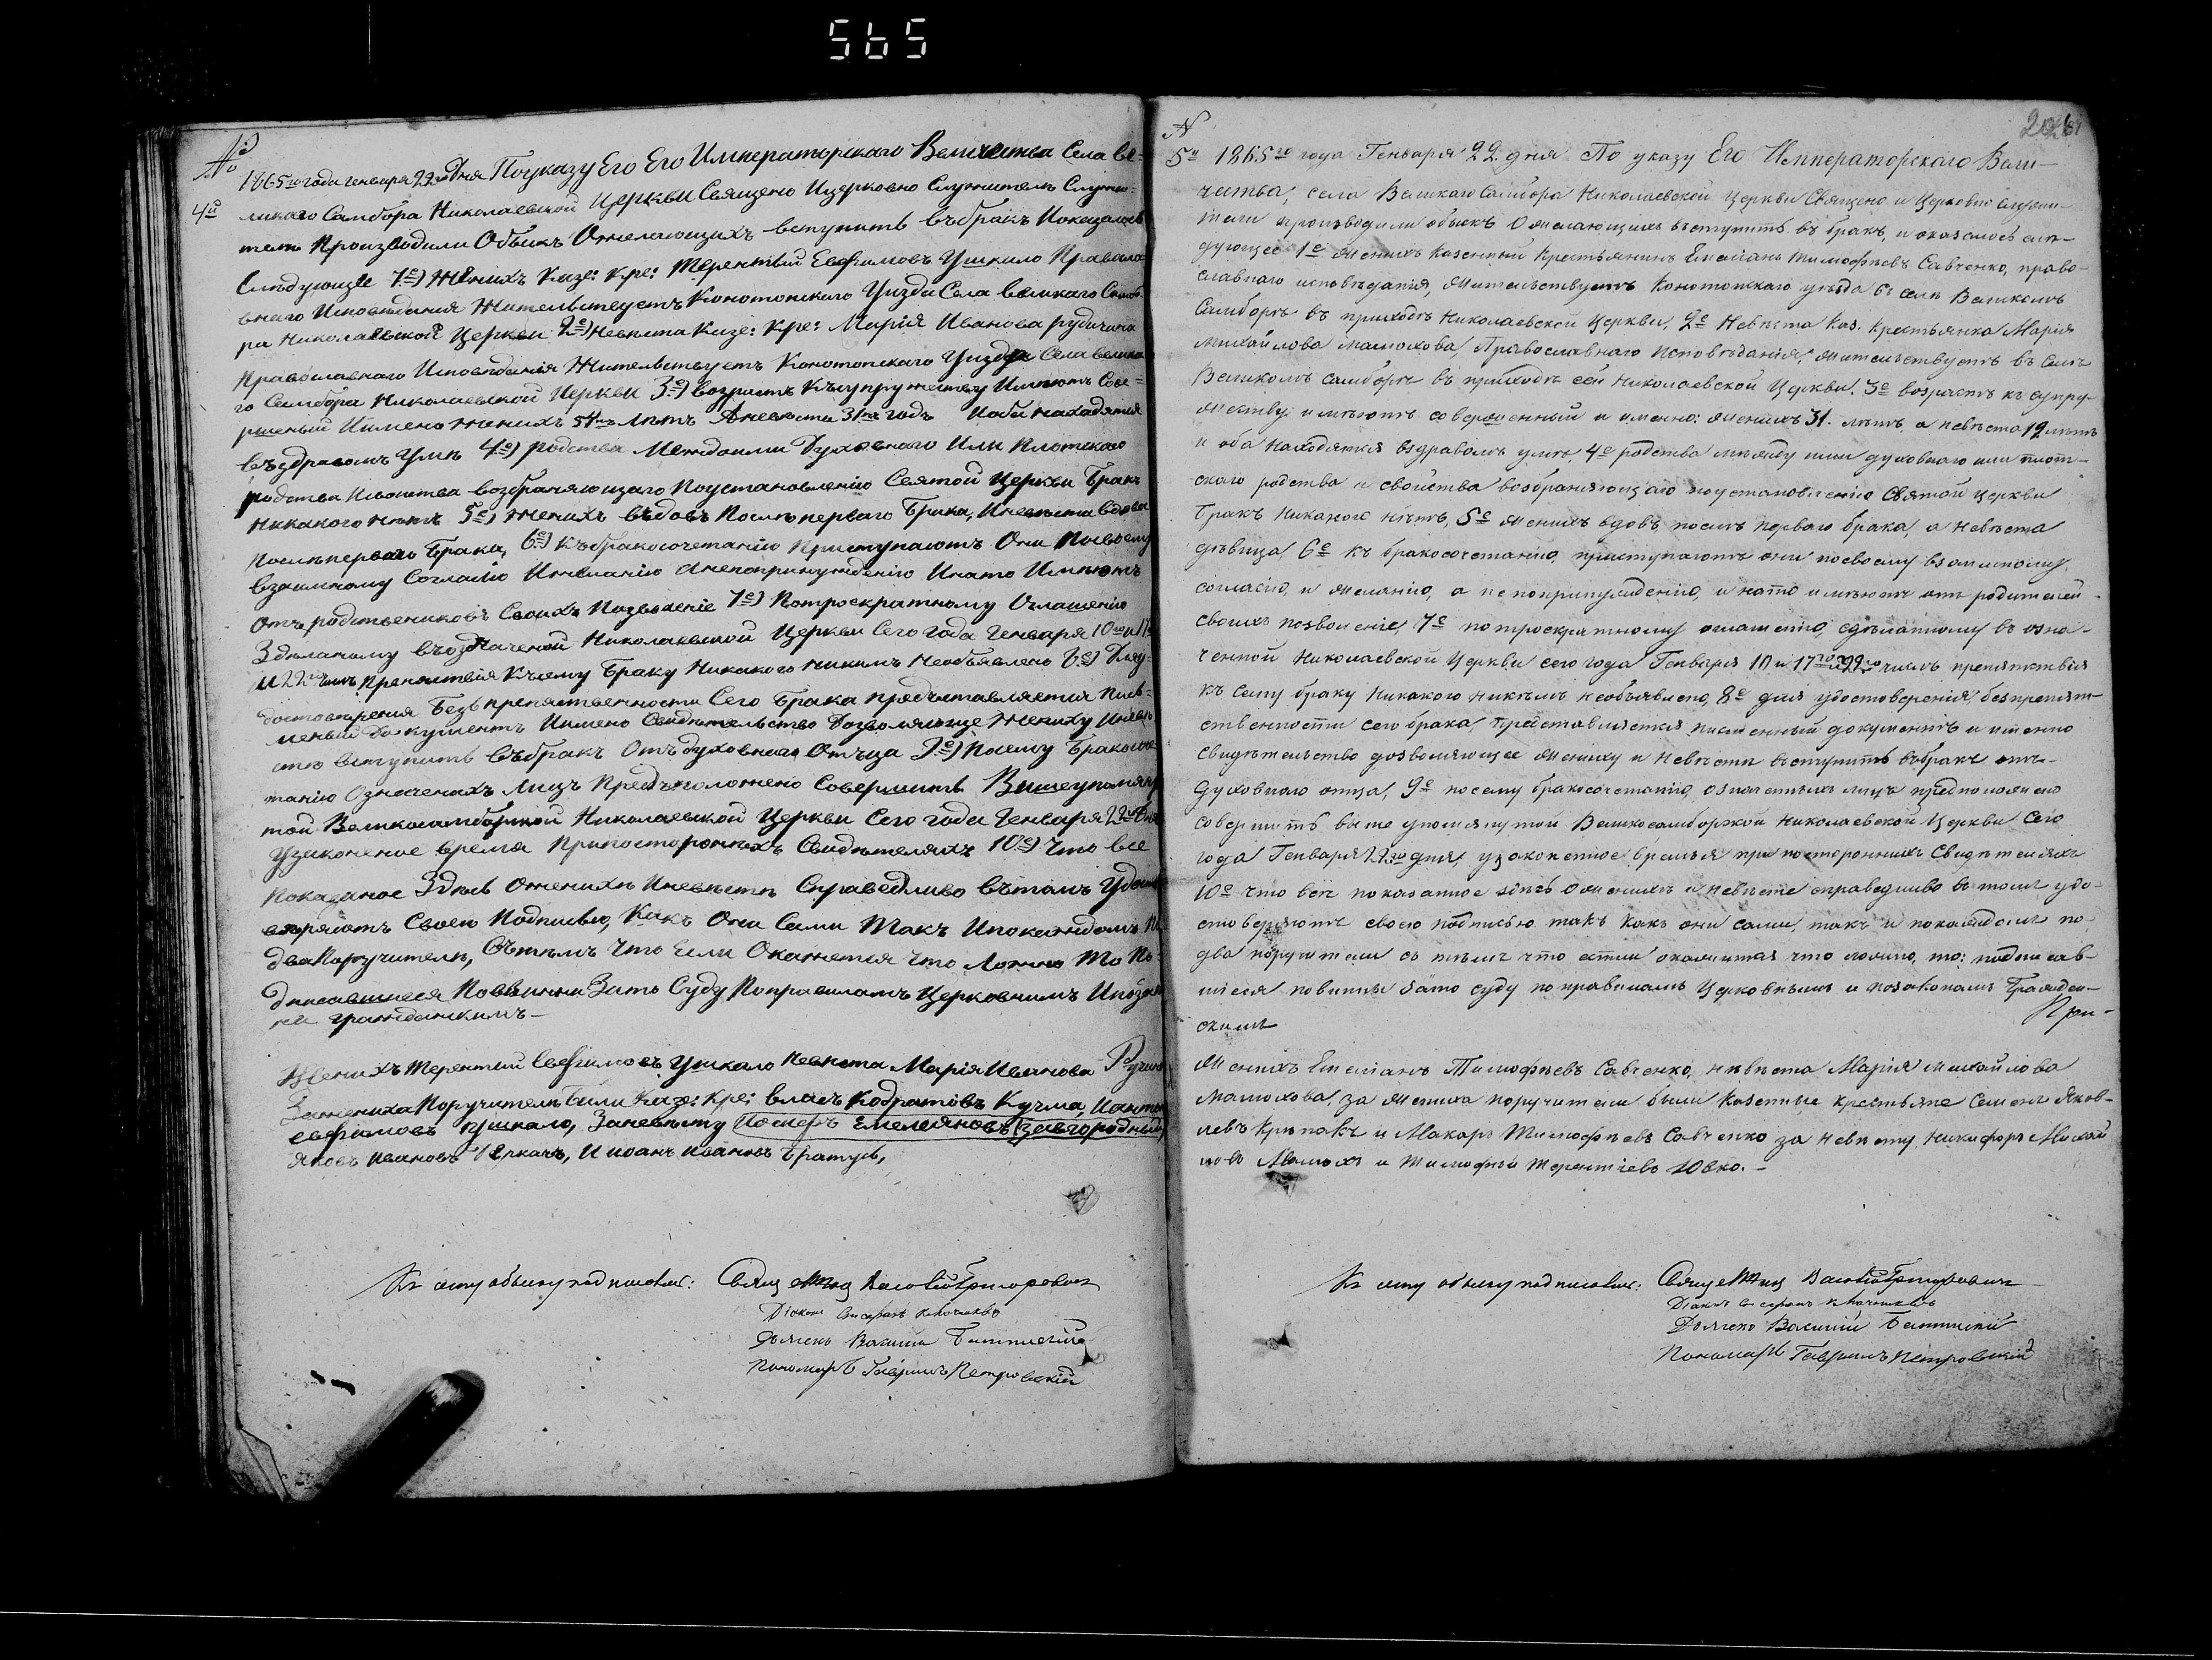 565
№
1865го года Генваря 22го Дня Поуказу Его Его Императорского Величества Села Ве=
4й
ликаго Самбора Николаевской Церкви Священо Ицерковно Служители Служи=
тели Производили Обыск Ожелающихъ вступить въбракъ Иоказалось
Следующие 1е) Женихъ Казе: Кре: Терентый Евфимовъ Ушкало Правосла
внаго Исповедания Жительствуетъ Конотопского Уизда Села великаго Самбо
ра Николаевской Церкви 2е) Невѣста Казе: Кре: Марія Иванова
Православного Исповѣданія Жительствуетъ Конотопского Уизда Села велико
го Самбора Николаевской Церкви 3е) возрасть Къ супружеству Имѣютъ Сове=
ршеный Иимено Женихъ 54 Лѣтъ Аневѣста 31 годъ Иоба находятся
въздравомъ Умѣ 4е) родства Междоими Духовного Или Плотского
родства Исвоиства возбраняющаго Поустановлению Святой Церкви Бракъ
Никакого Нѣтъ 5е) Женихъ въдовъ Послѣ перваго Брака, Иневѣста вдова
Послѣ перваго Брака, 6е) Къбракосочетанію Приступаютъ Они Посвоему
взаимному Согласію Ижеланию Анепопринуждению Инато Имѣютъ
Отъ родствениковъ Своихъ Позволение 7е) Потроекратному Оглашению
Здѣланому въозначеной Николаевской Церкви Сего года Генваря 10 и 17
И 22 числъ Препятствия Ксему Браку Никакого никимъ Необъявлено 8е) Дляу
достовирения Безъ препятственности Сего Брака Предъставляется Пись=
меный Документъ Иимено Свидѣтельство Дозволяющее Жениху Иневѣ
сте Вступить Въбракъ Отъ духовнаго Отъца 9е) Посему Бракосоче
танію Означеныхъ Лицъ Предъположено Совершить Вышеупомяну
той Великосамборской Николаевской Церкви Сего года Генваря 22 Дня
Узаконеное время Припосторонихъ Свидѣтеляхъ 10е) Что все
Показаное Здѣсь Оженихе Иневѣсте Справедливо Вътомъ Удосто
веряютъ Своею Подписью, Какъ Они Сами Такъ Ипокаждомъ По
два Поручителя, Сътѣмъ Что Если Окажется Что Ложно То По
дписавшиеся Повинни Зато Суду Поправиламъ Церковнимъ Ипозако
намъ Гражданскимъ—
Женихъ Терентый Евфимовъ Ушкало Невѣста Марія Иванова
Зажениха Поручители Били Казе: Кре: Власъ Кодратовъ Кучма, Иантон
Евфимовъ Ушкало, Заневѣсту Иосифъ Емелеяновъ Завгородный
Яковъ Ивановъ Иоанъ Ивановъ Братусь,
Къ сему обыску подписались: Священникъ Василій Григоровичъ
Діаконъ
Дьячекъ Василій
Пономарь Гавріилъ Петровскій
№
5й 1865го года Генваря 22 дня По указу Его Императорского Вели-
чества, села Великаго Самбора Николаевской Церкви Священо и Церковно служи-
тели производили обыскъ О желающихъ вступить въ бракъ, и оказалось слѣ-
дующее 1е Женихъ Казенный Крестьянинъ Емелианъ Тимофѣевъ Савченко, право-
славнаго исповѣдания, Жительствуетъ Конотопскаго уѣзда въ селѣ Великомъ
Самборѣ въ приходѣ Николаевской Церкви, 2е Невѣста Каз. Крестьянка Марія
Михайлова Малюхова, Православнаго исповѣданія, Жительствуетъ въ Селѣ
Великомъ Самборѣ въ приходѣ сей Николаевской Церкви. 3е возрастъ къ супру-
жеству имѣютъ совершенный и именно: Женихъ 31. лѣтъ, а невѣста 19 лѣтъ
и оба находятся въздравомъ умѣ, 4е родства между ими духовнаго или плот-
скаго родства и свойства возбраняющаго поустановлению Святой Церкви
бракъ Никакого нѣтъ, 5е Женихъ вдовъ послѣ перваго брака, а Невѣста
дѣвица, 6е къ бракосочетанію, приступаютъ они посвоему взаимному
согласію, и желанію, а не попринуждению, и нато имѣютъ отъ родителей
своихъ позволение, 7е потроекратному оглашению, сдѣланному въ озна-
ченной Николаевской Церкви сего года Генваря 10 и 17 и 22 числъ препятствия
къ сему браку Никакого никѣмъ необъявлено, 8е для удостоверения безпрепят-
ственности сего брака, представляется писменный документъ и именно
свидѣтельство дозволяющее Жениху и Невѣстѣ вступить въбракъ отъ
Духовнаго отца, 9е посему бракосочетанію, означенныхъ лицъ предположено
совершить выше упомянутой Великосамборской Николаевской Церкви Сего
года Генваря 22го дня, узаконенное время при постороннихъ Свидѣтеляхъ
10е что все показанное здѣсь о женихѣ и невѣсте справедливо въ томъ удо-
стоверяютъ своею подписью такъ какъ они сами, такъ и покаждомъ по
два поручители съ тѣмъ что если окажится что ложно, то: подписав-
шіеся повинны зато суду по правиламъ Церковнымъ и позаконамъ Граждан-
скимъ
При-
Женихъ Емеліанъ Тимофѣевъ Савченко, невѣста Марія Михайлова
Малюхова, за жениха поручители были казенные крестьяне Семенъ Яков-
левъ Крѣпакъ и Макаръ Тимофѣевъ Савченко за невѣсту Никифоръ Михай
ловъ Малюхъ и Тимофѣй Терентіевъ Ювко. —
Къ сему обыску подписались: Священникъ Василій Григоровичъ
Діаконъ
Дьячекъ Василій
Пономарь Гавріилъ Петровскій